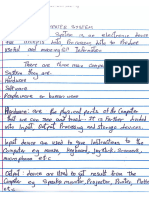 COMPUTER SYSTEM
System is an electronic device
Accepts Data, Processes Data to Produce
Useful and meaningful Information
There are three main Computer
System they are:
Hardware
Software
People ware or human ware
Hardware: are the physical parts of the Computer
that we can see and touch. It is further divided
into Input, Output, Processing and Storage devices.
Input device are used to give Instructions to the
Computer eg Mouse, Keyboard, Joystick, Scanner,
microphone etc
Output: device are used to get result from the
Computer eg Speaker monitor, Projector, Printer, Plotter
etc